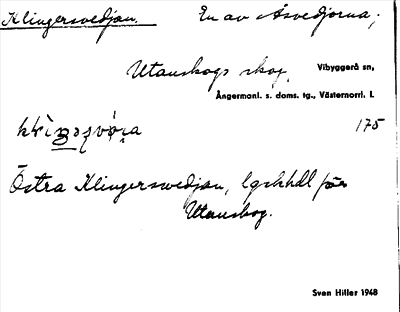 Klingersvedjan. En av Åsvedjorna;
Utanskogs skog. Vibyggerå sn,
Ångermanl. s. doms. tg., Västernorrl. l.
175
Östra Klingersvedjan, lgskhdl för
Utanskog.
Sven Hiller 1948